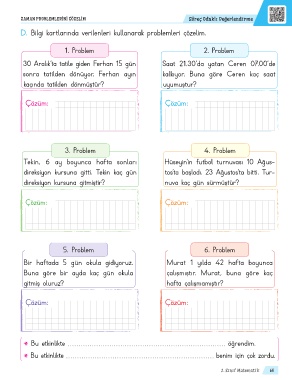 ZAMAN PROBLEMLERİNİ ÇÖZELİM
Süreç Odaklı Değerlendirme
D. Bilgi kartlarında verilenleri kullanarak problemleri çözelim.
1. Problem
30 Aralık'ta tatile giden Ferhan 15 gün
sonra tatilden dönüyor. Ferhan ayın
kaçında tatilden dönmüştür?
Çözüm:
2. Problem
Saat 21.30'da yatan Ceren 07.00'de
kalkıyor. Buna göre Ceren kaç saat
uyumuştur?
Çözüm:
3. Problem
Tekin, 6 ay boyunca hafta sonları
direksiyon kursuna gitti. Tekin kaç gün
direksiyon kursuna gitmiştir?
Çözüm:
4. Problem
Hüseyin'in futbol turnuvası 10 Ağus-
tos'ta başladı. 23 Ağustos'ta bitti. Tur-
nuva kaç gün sürmüştür?
Çözüm:
5. Problem
Bir haftada 5 gün okula gidiyoruz.
Buna göre bir ayda kaç gün okula
gitmiş oluruz?
Çözüm:
6. Problem
Murat 1 yılda 42 hafta boyunca
çalışmıştır. Murat, buna göre kaç
hafta çalışmamıştır?
Çözüm:
Bu etkinlikte ........ öğrendim.
Bu etkinlikte ........ benim için çok zordu.
2. Sınıf Matematik